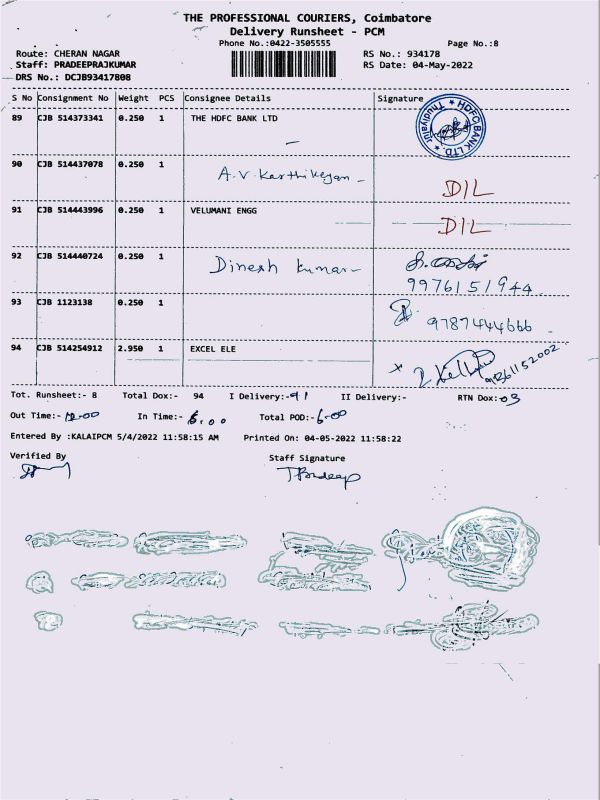 THE PROFESSIONAL COURIERS, Coimbatore
Delivery Runsheet - PCM
Phone No.:0422-3505555
Page No.:8
Route: CHERAN NAGAR
RS No.: 934178
Staff: PRADEEPRAJKUMAR
RS Date: 04-May-2022
DRS No.: DCJB93417808
S No Consignment No Weight PCS Consignee Details Signature
89 CJB 514373341 0.250 1 THE HDFC BANK LTD
HDFC BANK LTD Thudiyalur
90 CJB 514437078 0.250 1 A.V. Karthikeyan
DIL
91 CJB 514443996 0.250 1 VELUMANI ENGG
DIL
92 CJB 514440724 0.250 1 Dinesh kumar
9976151944
93 CJB 1123138 0.250 1
9787444666
94 CJB 514254912 2.950 1 EXCEL ELE
9361152002
Tot. Runsheet:- 8 Total Dox:- 94 I Delivery:-91 II Delivery:- RTN Dox:-03
Out Time:- 12.00 In Time:- 6.00 Total POD:- 6.00
Entered By :KALAIPCM 5/4/2022 11:58:15 AM Printed On: 04-05-2022 11:58:22
Verified By Staff Signature